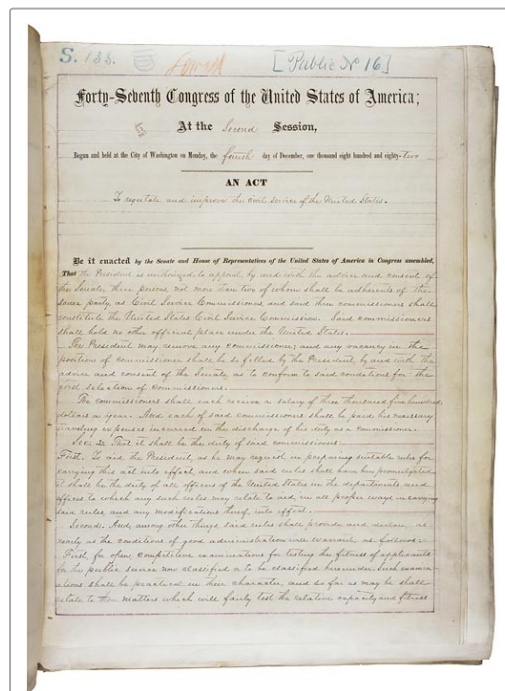 S. 133.
[Public No 16]
Forty-Seventh Congress of the United States of America;
At the Second Session,
Begun and held at the City of Washington on Monday, the fourth day of December, one thousand eight hundred and eighty-two
AN ACT
To regulate and improve the civil service of the United States.
Be it enacted by the Senate and House of Representatives of the United States of America in Congress assembled,
That the President is authorized to appoint, by and with the advice and consent of
the Senate, three persons, not more than two of whom shall be adherents of the
same party, as Civil Service Commissioners, and said three commissioners shall
constitute the United States Civil Service Commission. Said commissioners
shall hold no other official place under the United States.
The President may remove any commissioner; and any vacancy in the
position of commissioner shall be so filled by the President, by and with the
advice and consent of the Senate, as to conform to said conditions for the
first selection of commissioners.
The commissioners shall each receive a salary of three thousand five hundred
dollars a year. And each of said commissioners shall be paid his necessary
traveling expenses incurred in the discharge of his duty as a commissioner.
Sec. 2. That it shall be the duty of said commissioners:
First. To aid the President, as he may request, in preparing suitable rules for
carrying this act into effect, and when said rules shall have been promulgated
it shall be the duty of all officers of the United States in the departments and
offices to which any such rules may relate to aid, in all proper ways, in carrying
said rules, and any modifications thereof, into effect.
Second. And, among other things, said rules shall provide and declare, as
nearly as the conditions of good administration will warrant, as follows:
First, for open, competitive examinations for testing the fitness of applicants
for the public service now classified or to be classified hereunder. Such examin-
ations shall be practical in their character, and so far as may be shall
relate to those matters which will fairly test the relative capacity and fitness